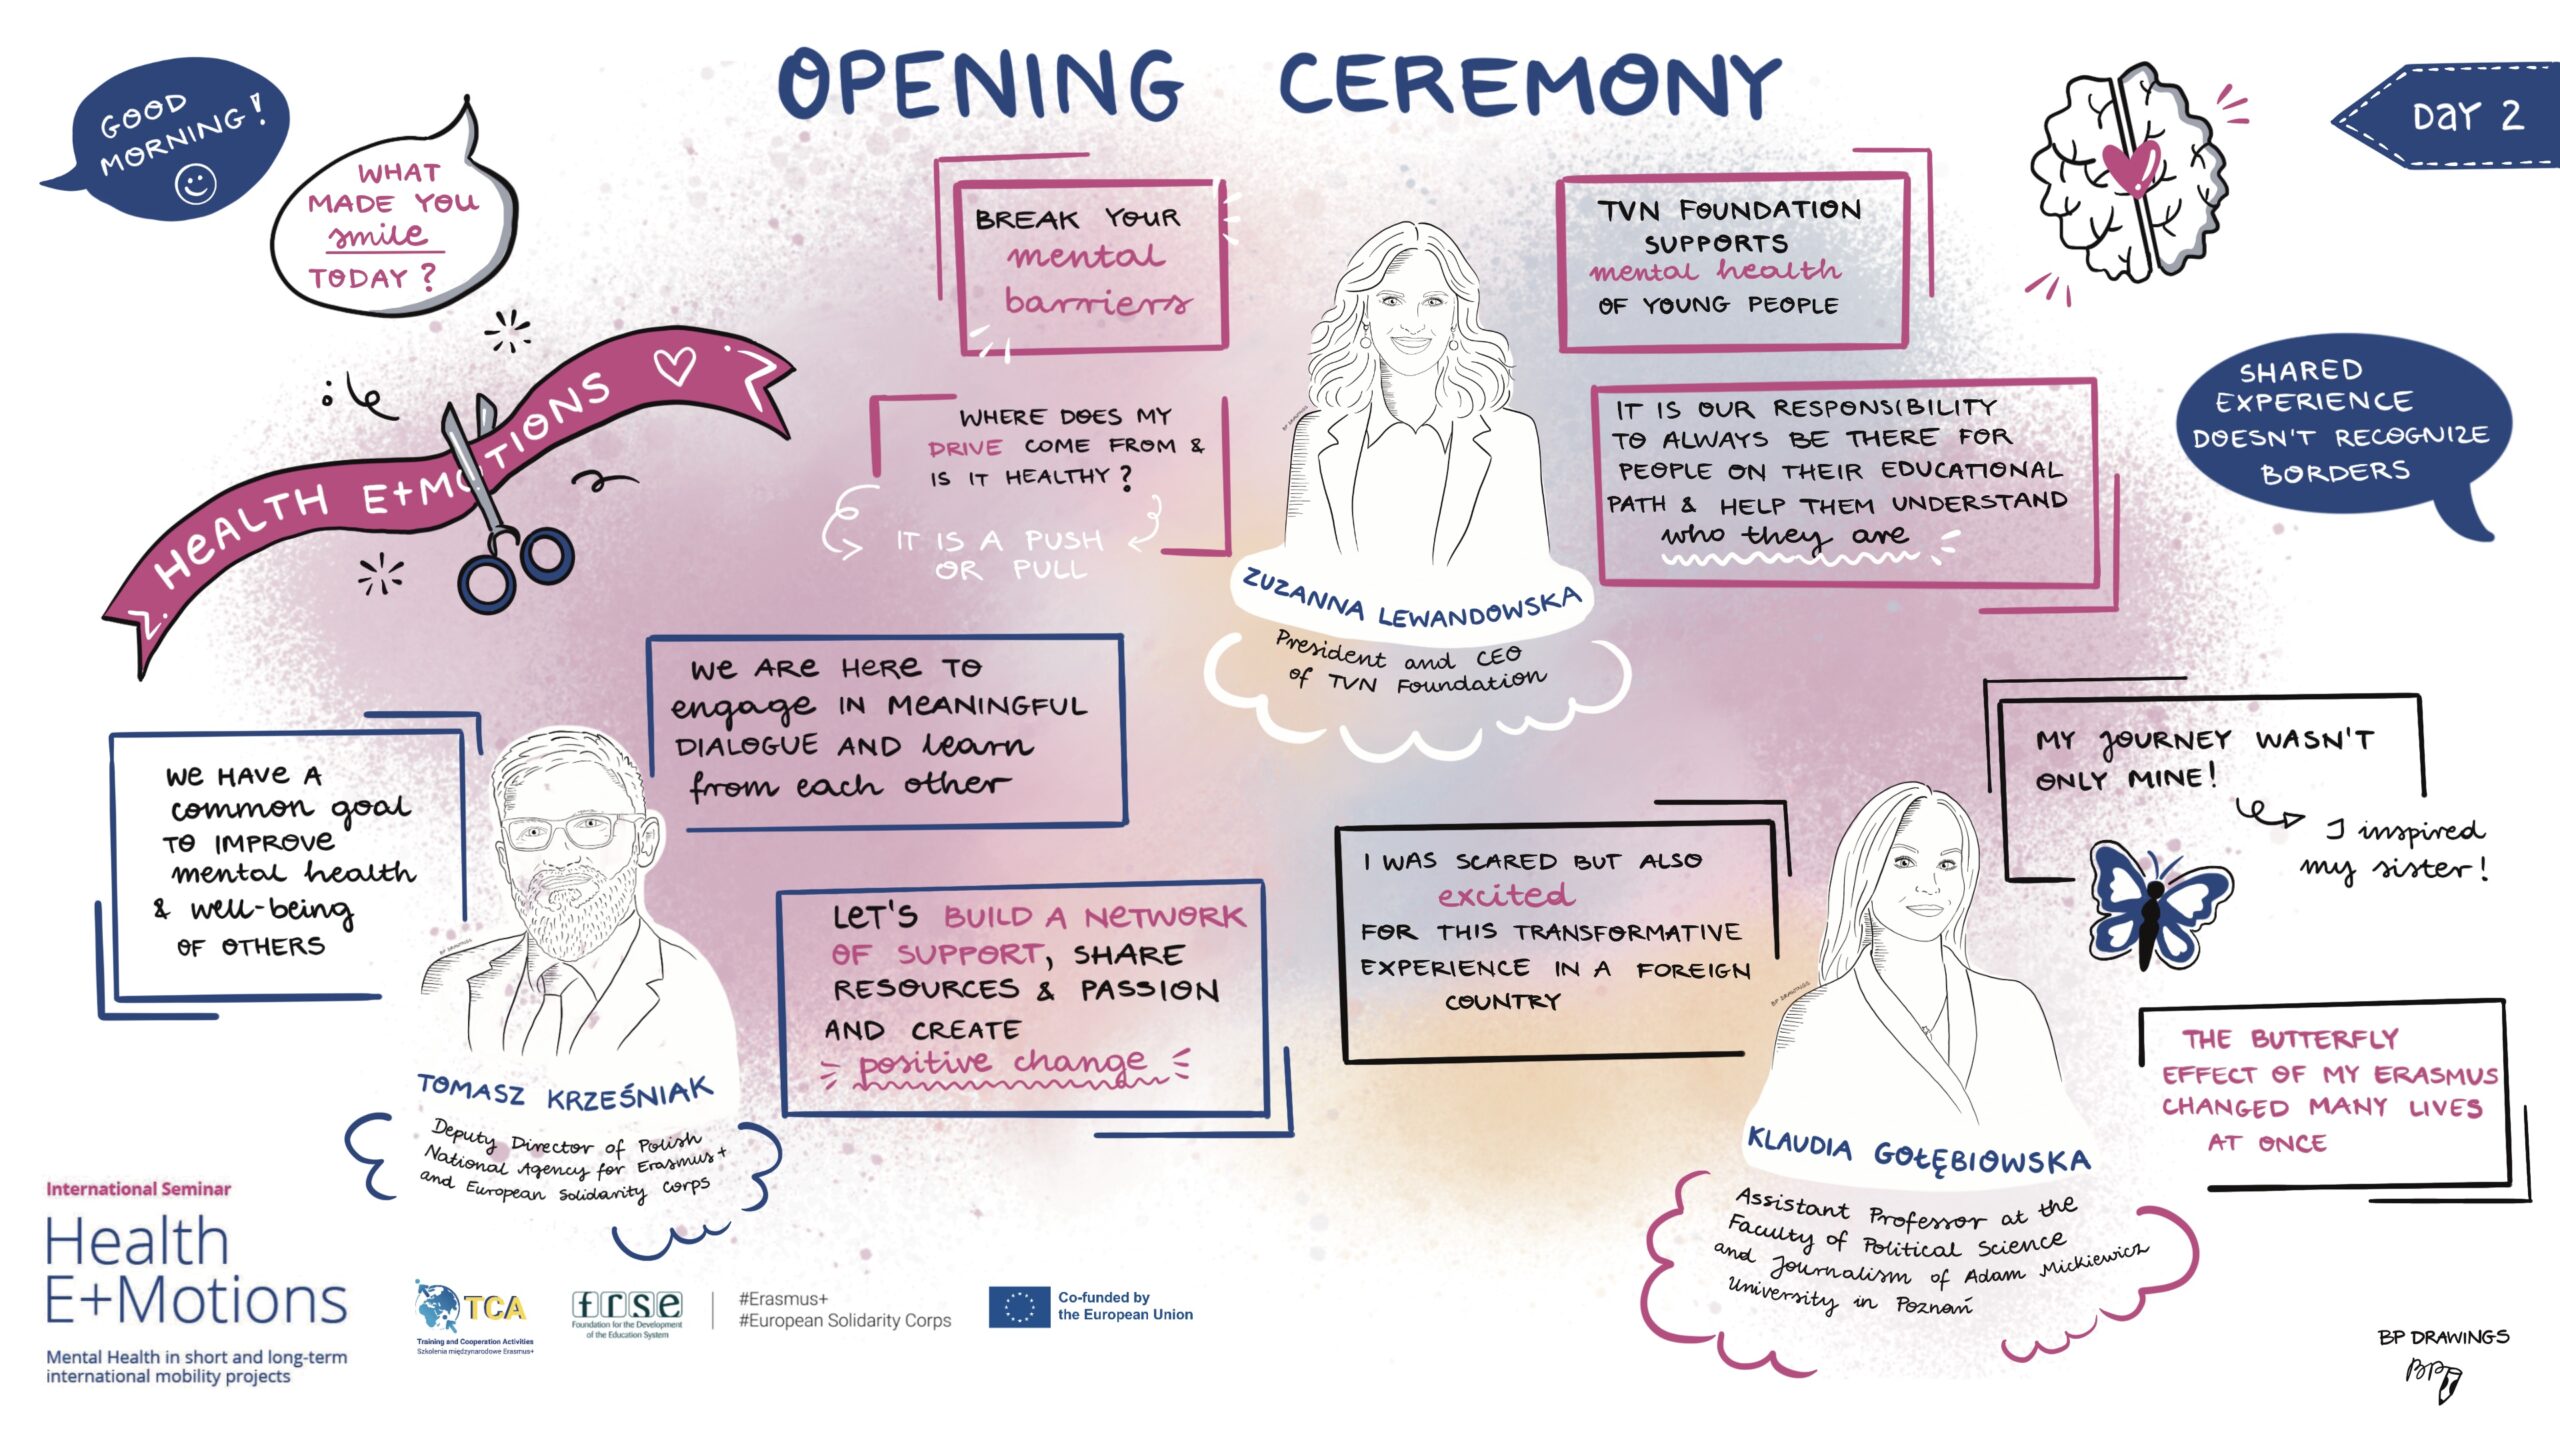 OPENING CEREMONY
DAY 2
GOOD
MORNING!
WHAT
MADE YOU
smile
TODAY?
HEALTH E+MOTIONS
BREAK YOUR
mental
barriers
WHERE DOES MY
DRIVE COME FROM &
IS IT HEALTHY?
IT IS A PUSH
OR PULL
TVN FOUNDATION
SUPPORTS
mental health
OF YOUNG PEOPLE
IT IS OUR RESPONSIBILITY
TO ALWAYS BE THERE FOR
PEOPLE ON THEIR EDUCATIONAL
PATH & HELP THEM UNDERSTAND
who they are
BP DRAWINGS
ZUZANNA LEWANDOWSKA
President and CEO
of TVN Foundation
SHARED
EXPERIENCE
DOESN'T RECOGNIZE
BORDERS
WE HAVE A
common goal
TO IMPROVE
mental health
& well-being
OF OTHERS
WE ARE HERE TO
engage IN MEANINGFUL
DIALOGUE AND learn
from each other
LET'S BUILD A NETWORK
OF SUPPORT, SHARE
RESOURCES & PASSION
AND CREATE
positive change
BP DRAWINGS
TOMASZ KRZEŚNIAK
Deputy Director of Polish
National Agency for Erasmus+
and European Solidarity Corps
I WAS SCARED BUT ALSO
excited
FOR THIS TRANSFORMATIVE
EXPERIENCE IN A FOREIGN
COUNTRY
MY JOURNEY WASN'T
ONLY MINE!
I inspired
my sister!
THE BUTTERFLY
EFFECT OF MY ERASMUS
CHANGED MANY LIVES
AT ONCE
BP DRAWINGS
KLAUDIA GOŁĘBIOWSKA
Assistant Professor at the
Faculty of Political Science
and Journalism of Adam Mickiewicz
University in Poznań
International Seminar
Health
E+Motions
Mental Health in short and long-term
international mobility projects
TCA
Training and Cooperation Activities
Szkolenia międzynarodowe Erasmus+
frse
Foundation for the Development
of the Education System
#Erasmus+
#European Solidarity Corps
Co-funded by
the European Union
BP DRAWINGS
BP